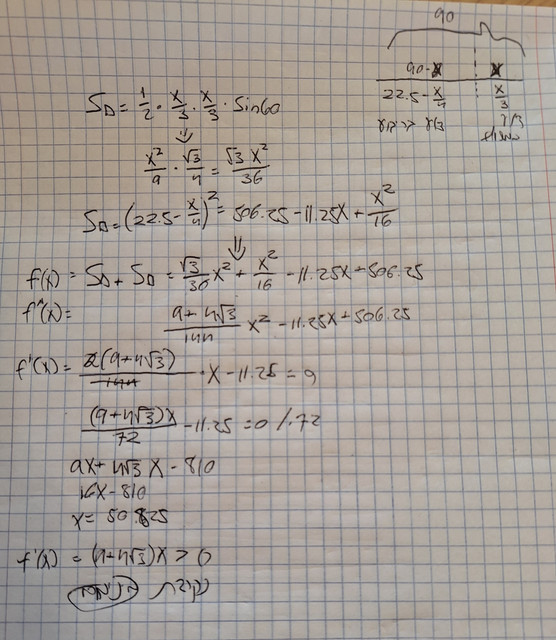 90
90-x x
22.5 - x/4 x/3
S△ = 1/2 · x/3 · x/3 · Sin60
⇓
x²/9 · √3/4 = √3 x²/36
S□ = (22.5 - x/4)² = 506.25 - 11.25x + x²/16
⇓
f(x) = S□ + S△ = √3/36 x² + x²/16 - 11.25x + 506.25
f(x) = 9+4√3/144 x² - 11.25x + 506.25
f'(x) = 2(9+4√3)/144 · x - 11.25 = 0
(9+4√3)x/72 - 11.25 = 0 /·72
9x + 4√3 x - 810
16x - 810
x = 50.625
f'(x) = (9+4√3)x > 0